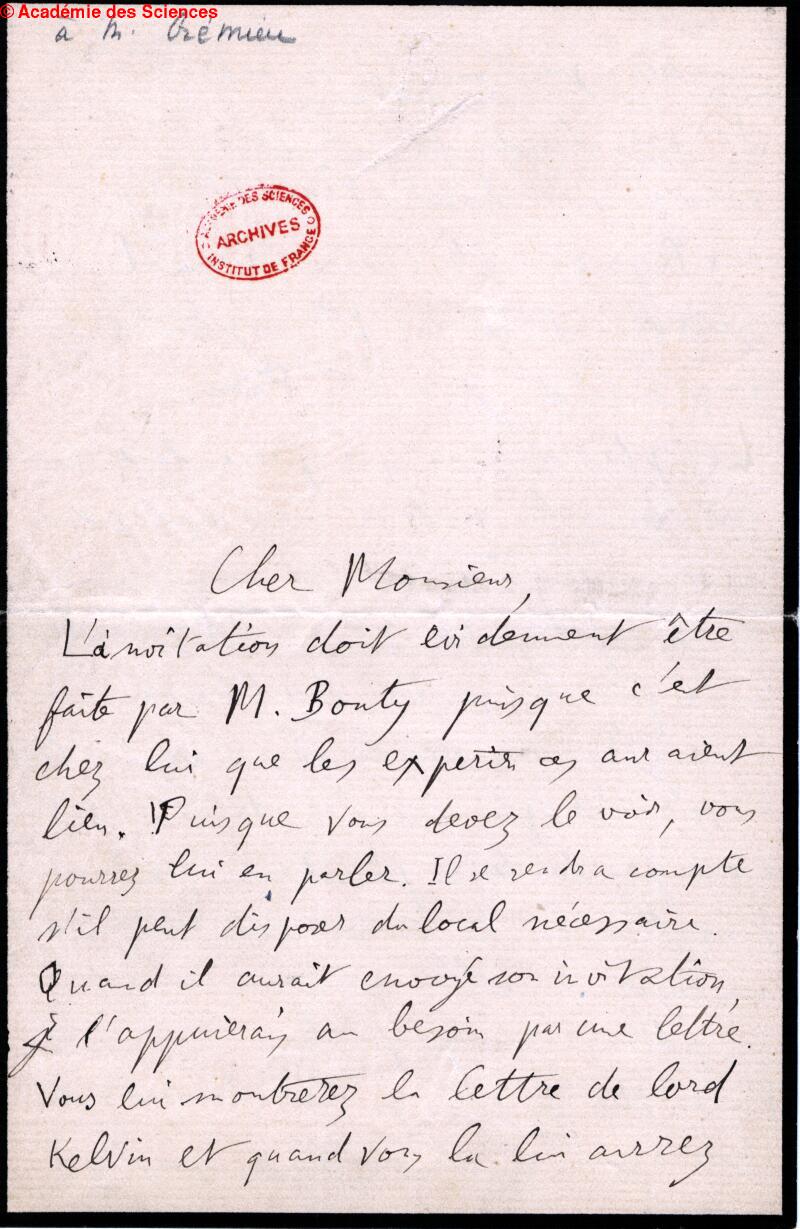 © Académie des Sciences
à M. Crémieu
ACADÉMIE DES SCIENCES
ARCHIVES
INSTITUT DE FRANCE
Cher Monsieur,
L'invitation doit evidemment être
faite par M. Bouty puisque c'est
chez lui que les experiences auraient
lieu. Puisque vous devez le voir, vous
pourrez lui en parler. Il se rendra compte
s'il peut disposer du local nécessaire.
Quand il aurait envoyé son invitation,
je l'appuierais au besoin par une lettre.
Vous lui montrerez la lettre de lord
Kelvin et quand vous la lui aurez